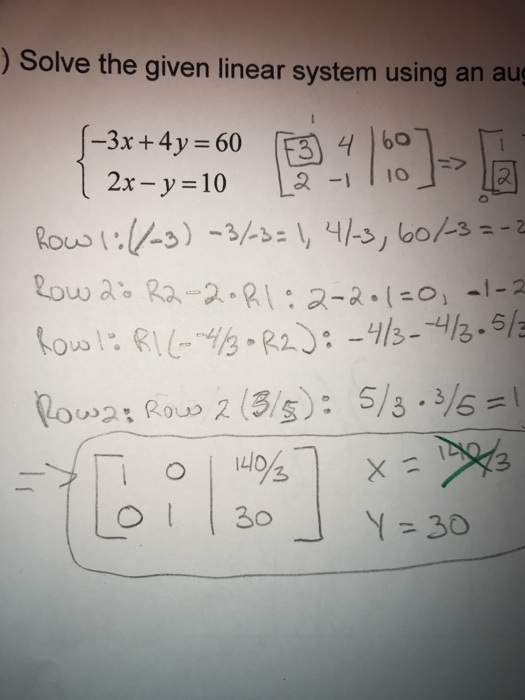 ) Solve the given linear system using an aug
1
{-3x + 4y = 60 [-3 4 | 60] => [1
{2x - y = 10 [2 -1 | 10] [2
0
Row 1: (/-3) -3/-3 = 1, 4/-3, 60/-3 = -2
Row 2: R2-2·R1: 2-2·1=0, -1-2
Row 1: R1(--4/3·R2): -4/3--4/3·5/3
Row 2: Row 2 (3/5): 5/3·3/5=1
=> [1 0 | 140/3] X = 140/3
[0 1 | 30] Y = 30